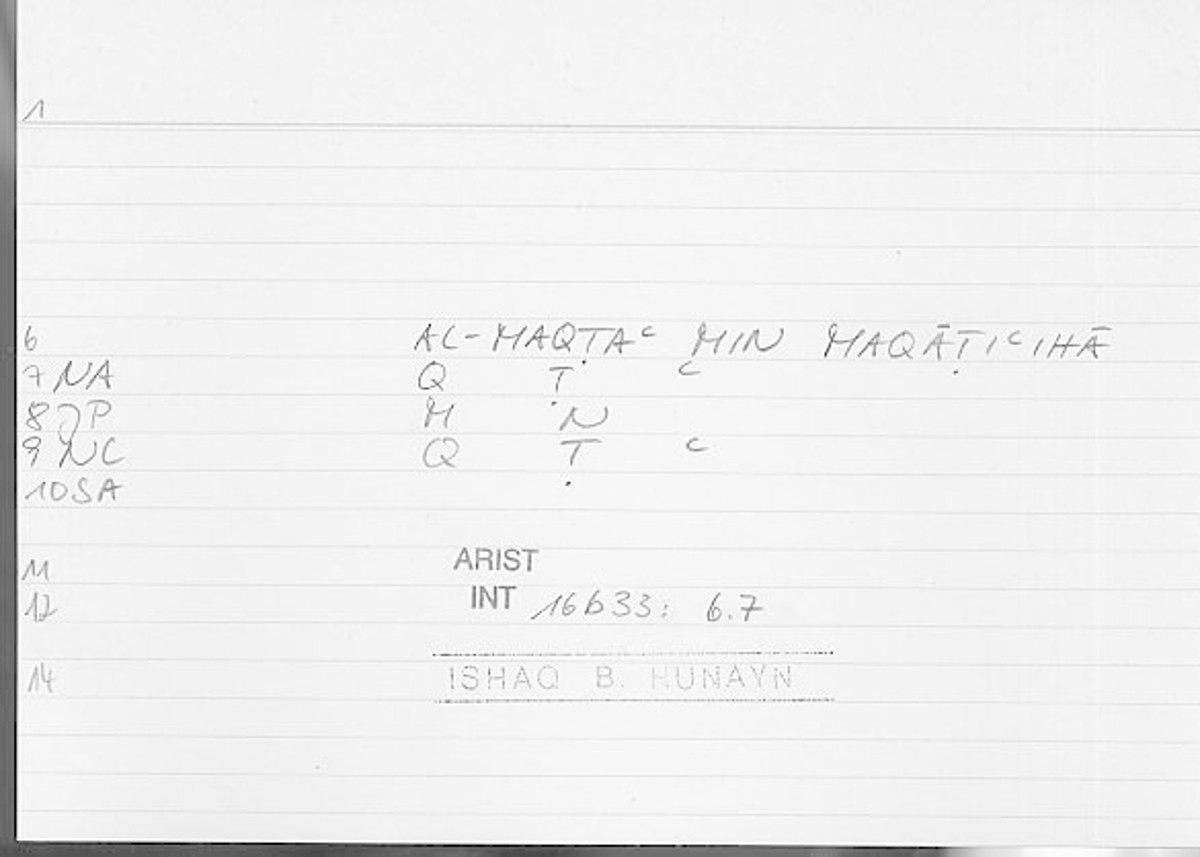 1
6 AL-MAQṬAʿ MIN MAQĀṬIʿIHĀ
7 NA Q Ṭ ʿ
8 JP M N
9 NC Q Ṭ ʿ
10 SA
11 ARIST
12 INT 16b33: 6.7
14 ISHAQ B. HUNAYN